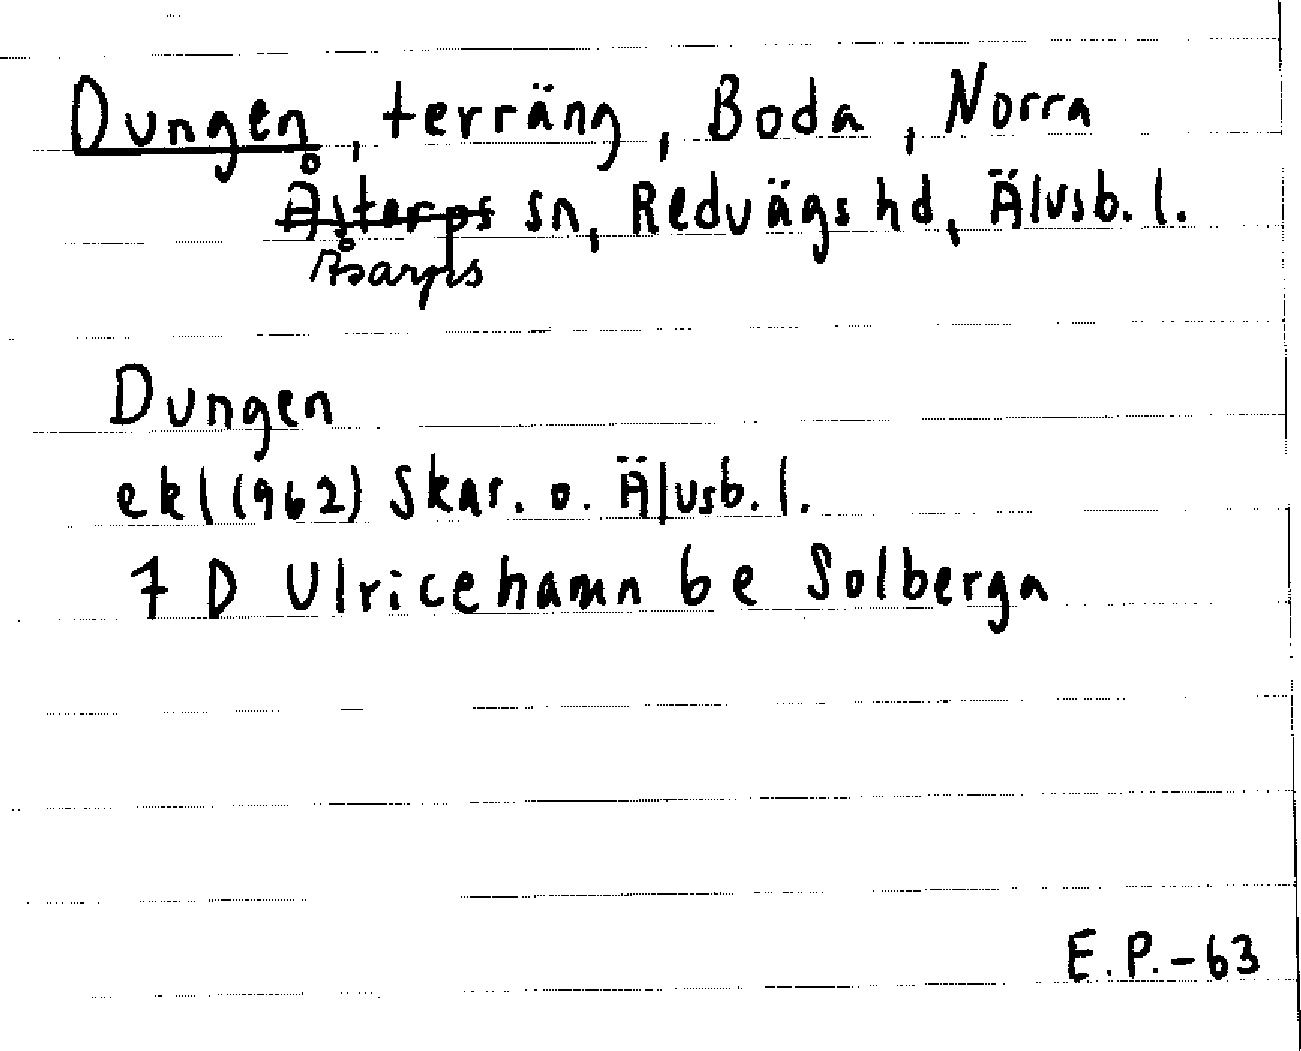 Dungen, terräng, Boda, Norra
Åsterps sn, Redvägs hd, Älvsb. l.
Åsarps
Dungen
ekl (962) Skar. o. Älvsb. l.
7 D Ulricehamn 6e Solberga
E.P.-63